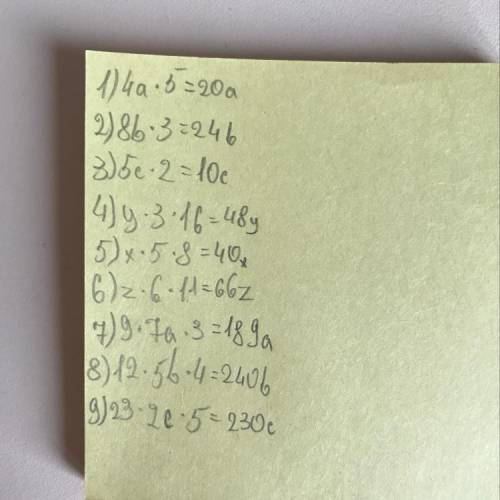 1) 4a · 5 = 20a
2) 8b · 3 = 24b
3) 5c · 2 = 10c
4) y · 3 · 16 = 48y
5) x · 5 · 8 = 40x
6) z · 6 · 11 = 66z
7) 9 · 7a · 3 = 189a
8) 12 · 5b · 4 = 240b
9) 23 · 2c · 5 = 230c